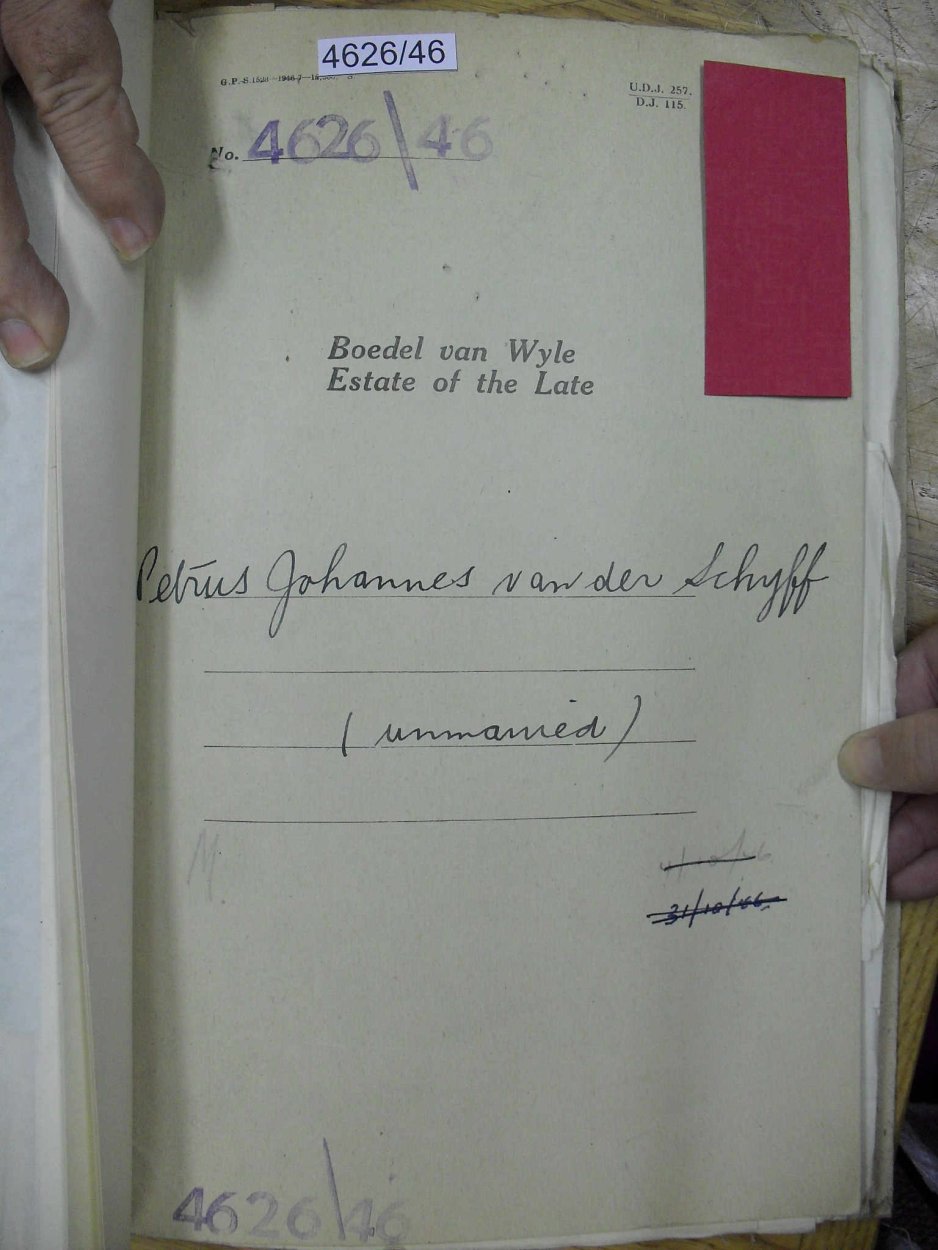 4626/46
U.D.J. 257.
D.J. 115.
No. 4626\46
Boedel van Wyle
Estate of the Late
Petrus Johannes van der Schyff
(unmarried)
31/10/46
4626\46